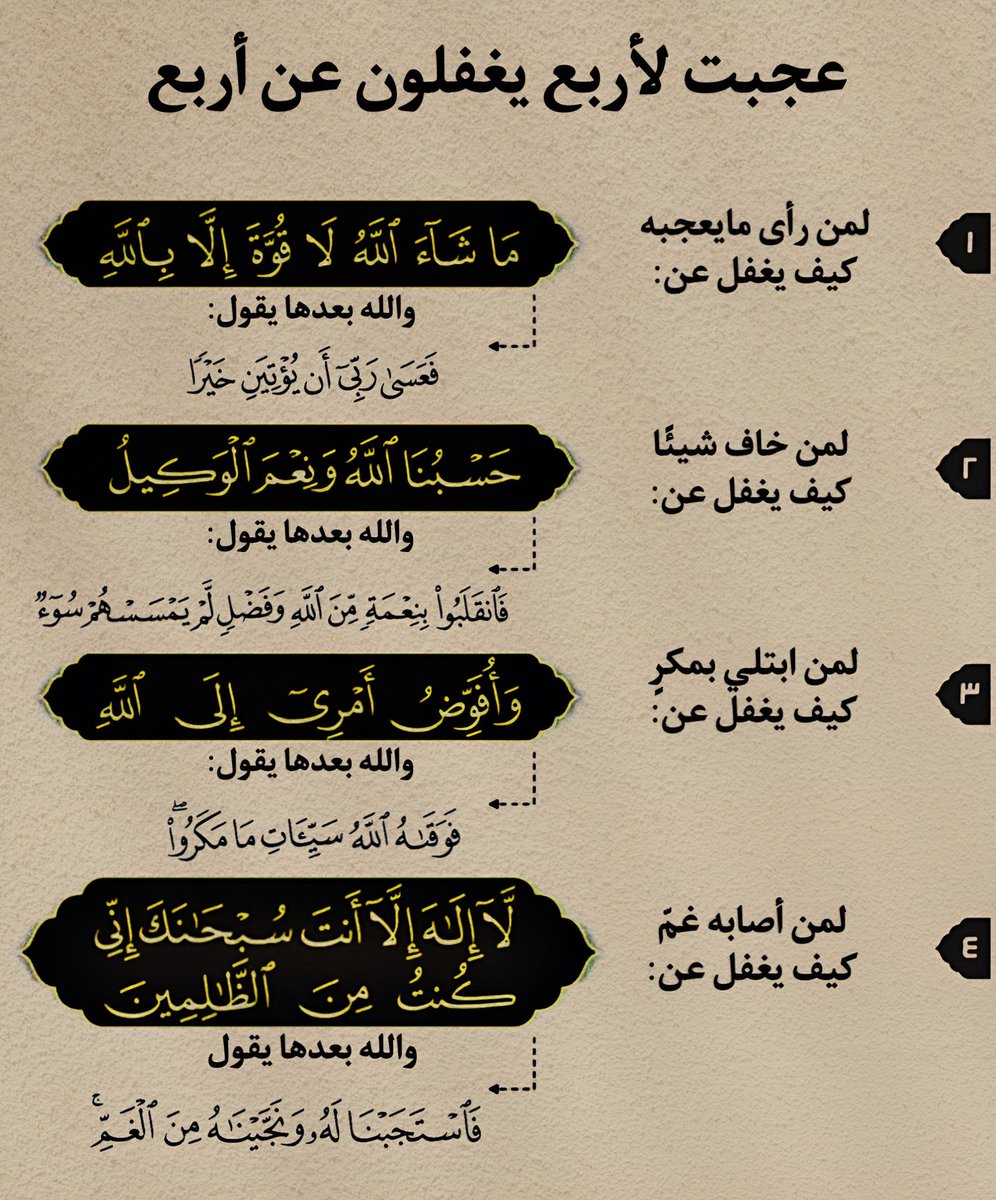 عجبت لأربع يغفلون عن أربع
١
لمن رأى مايعجبه
كيف يغفل عن:
مَا شَآءَ ٱللَّهُ لَا قُوَّةَ إِلَّا بِٱللَّهِ
والله بعدها يقول:
فَعَسَىٰ رَبِّىٓ أَن يُؤْتِيَنِ خَيْرًا
٢
لمن خاف شيئًا
كيف يغفل عن:
حَسْبُنَا ٱللَّهُ وَنِعْمَ ٱلْوَكِيلُ
والله بعدها يقول:
فَٱنقَلَبُوا۟ بِنِعْمَةٍ مِّنَ ٱللَّهِ وَفَضْلٍ لَّمْ يَمْسَسْهُمْ سُوٓءٌ
٣
لمن ابتلي بمكرٍ
كيف يغفل عن:
وَأُفَوِّضُ أَمْرِىٓ إِلَى ٱللَّهِ
والله بعدها يقول:
فَوَقَىٰهُ ٱللَّهُ سَيِّـَٔاتِ مَا مَكَرُوا۟ۖ
٤
لمن أصابه غمّ
كيف يغفل عن:
لَّآ إِلَـٰهَ إِلَّآ أَنتَ سُبْحَـٰنَكَ إِنِّى
كُنتُ مِنَ ٱلظَّـٰلِمِينَ
والله بعدها يقول
فَٱسْتَجَبْنَا لَهُۥ وَنَجَّيْنَـٰهُ مِنَ ٱلْغَمِّۚ